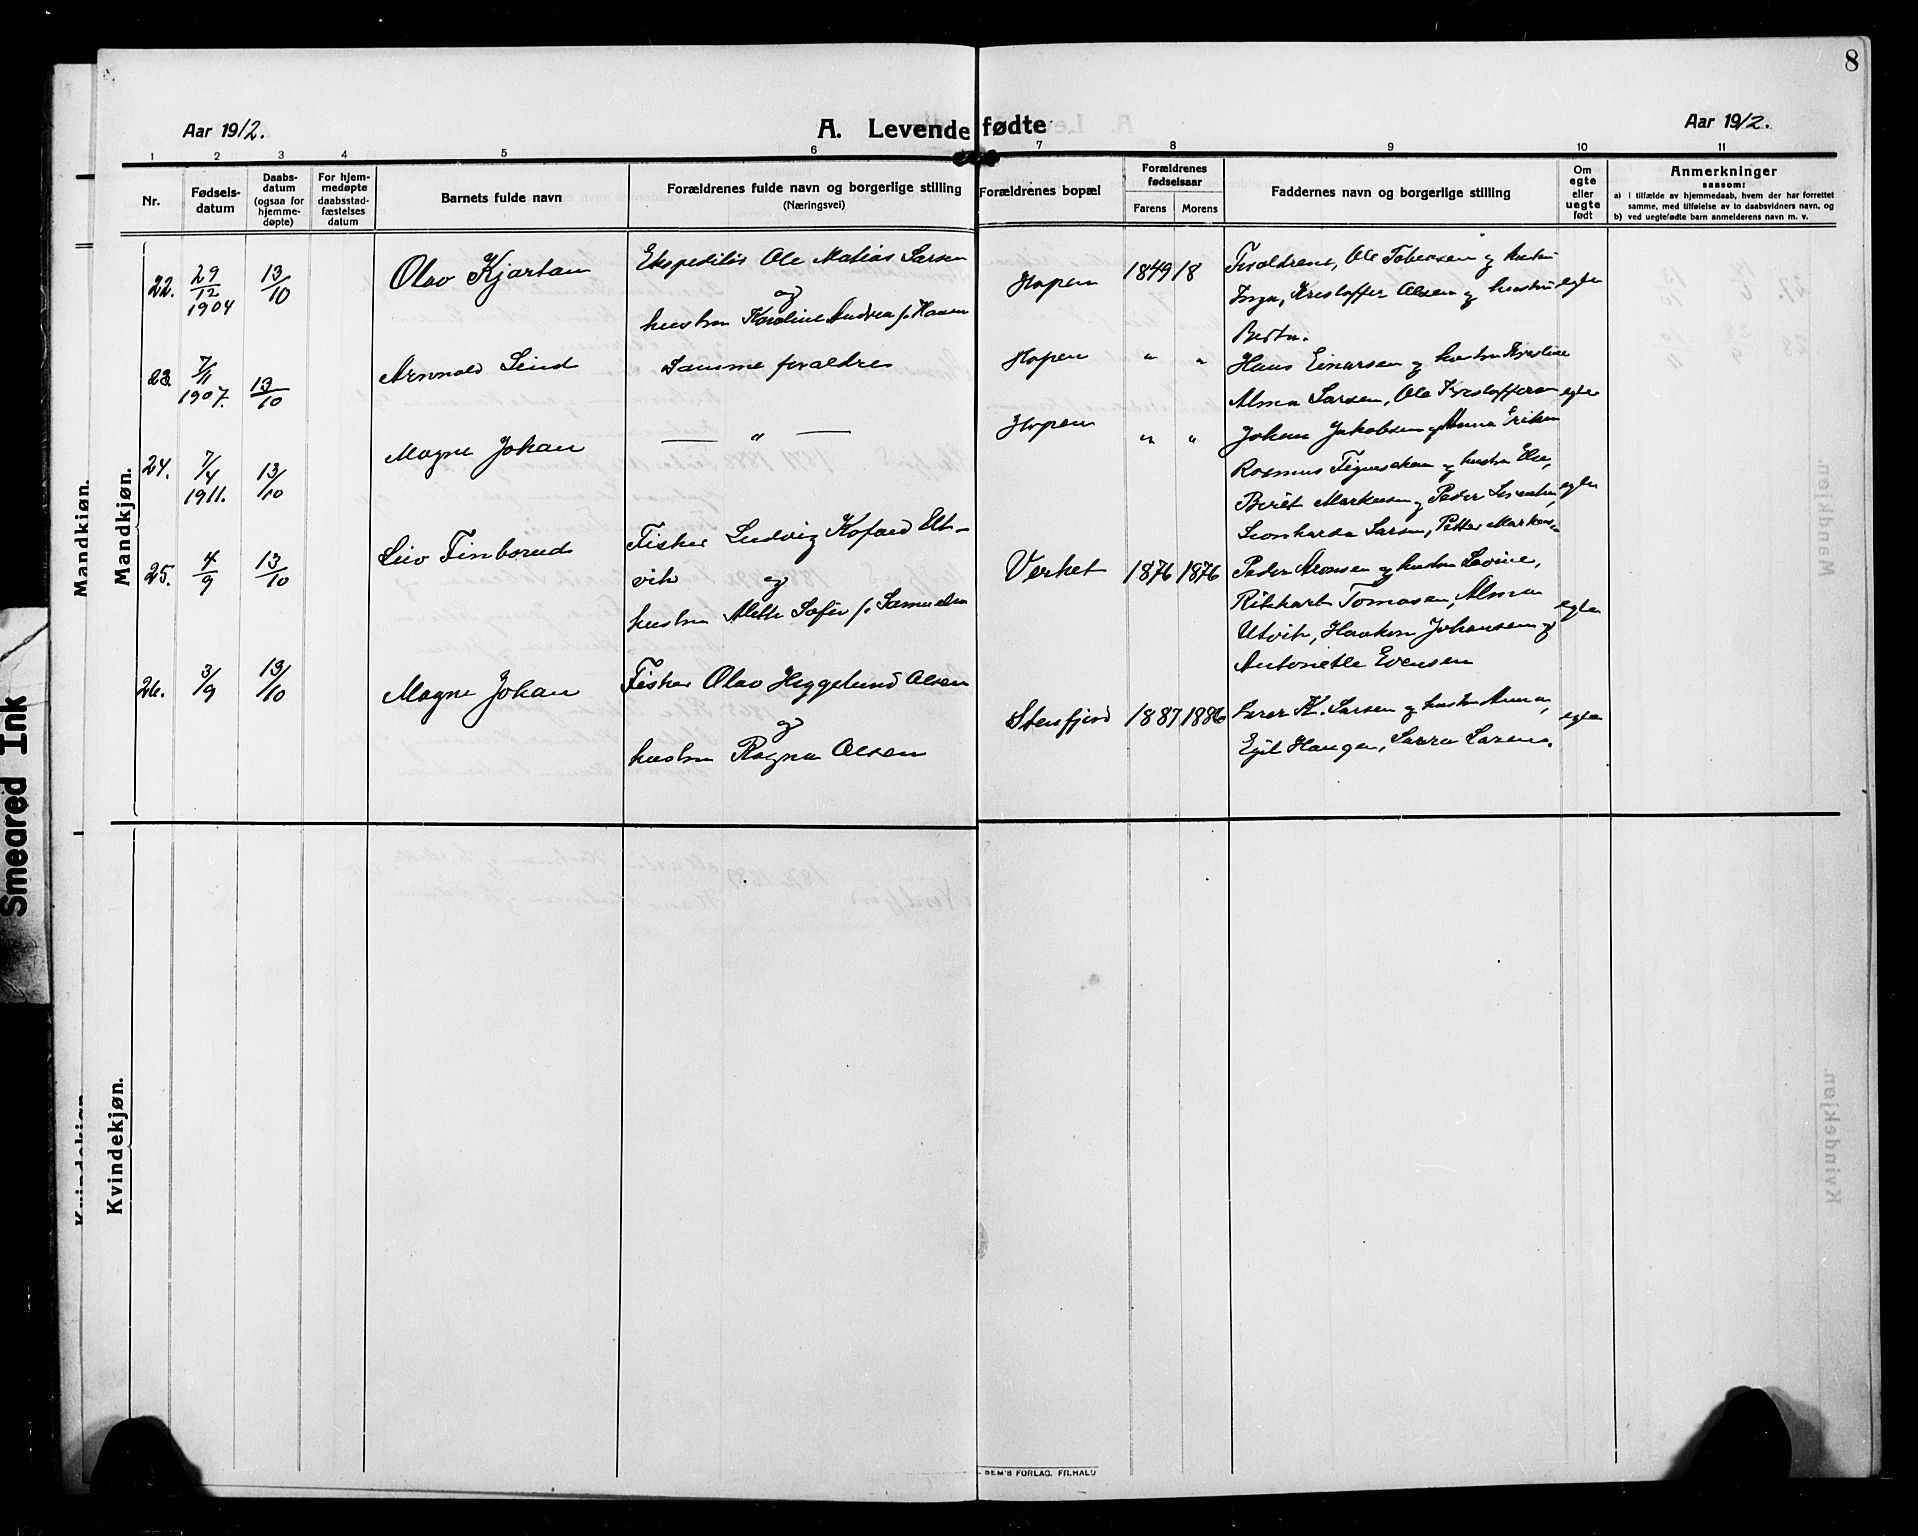 8
Aar 1912.
A. Levende fødte
Aar 1912.
1 2 3 4 5 6 7 8 9 10 11
Nr.
Fødsels-
datum
Daabs-
datum
(ogsaa for
hjemme-
døpte)
For hjem-
medøpte
daabsstad-
fæstelses
datum
Barnets fulde navn
Forældrenes fulde navn og borgerlige stilling
(Næringsvei)
Forældrenes bopæl
Forældrenes
fødselsaar
Farens Morens
Faddernes navn og borgerlige stilling
Om
egte
eller
uegte
født
Anmerkninger
saasom:
a) i tilfælde av hjemmedaab, hvem der har forrettet
samme, med tilføielse av to daabsvidners navn, og
b) ved uegtefødte barn anmelderens navn m. v.
Mandkjøn.
Mandkjøn.
22. 29/12 1904 13/10 Olav Kjartan
Ekspeditør Ole Matias Larsen
og
hustru Karoline Andrea f. Hansen
Hopen 1849 18
Forældrene, Ole Tobersen og hustru
Inga, Kristoffer Olsen og hustru
Berta.
egte
23. 7/11 1907. 13/10 Arnold Leind
Samme forældre
Hopen " "
Hans Einarsen og hustru Kristine
Alma Larsen, Ole Kristoffersen
egte
24. 7/4 1911. 13/10 Magne Johan
— " —
Hopen " "
Johan Jakobsen og Anna Eriksen
Rasmus og hustru Else,
Berit Markusen og Peder
Leonharda Larsen, Petter Markus-
egte
25. 4/9 13/10 Leiv Finborud
Fisker Ludvig Kofoed Elt-
vik
og
hustru Alette Sofie f. Samuelsen
Verket 1876 1876
Peder Aronsen og hustru Lovise,
Rikhart Tomasen, Alma
Utvik, Haakon Johansen og
Antonette Evensen
egte
26. 3/9 13/10 Magne Johan
Fisker Olav Heggelund Olsen
og
hustru Ragna Olsen
Stensfjord 1887 1886
K. Larsen og hustru Anna,
Egil Haugen, Larsen.
egte
Kvindekjøn.
Kvindekjøn.
Smeared Ink
SEM'S FORLAG. FR.HALD